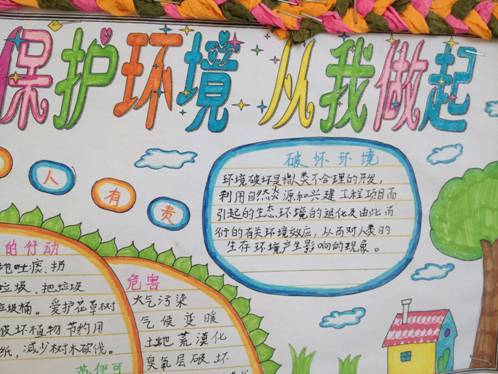 保护环境 从我做起
人 有 责
破坏环境
环境破坏是指人类不合理的开发,
利用自然资源和兴建工程项目而
引起的生态环境的退化及由此而
衍的有关环境效应,从而对人类的
生存环境产生影响的现象。
的行动
地吐痰、扔
垃圾、把垃圾
垃圾桶。爱护花草树
破坏植物 节约用
纸,减少树木砍伐。
危害
大气污染
气候变暖
土地荒漠化
臭氧层破坏